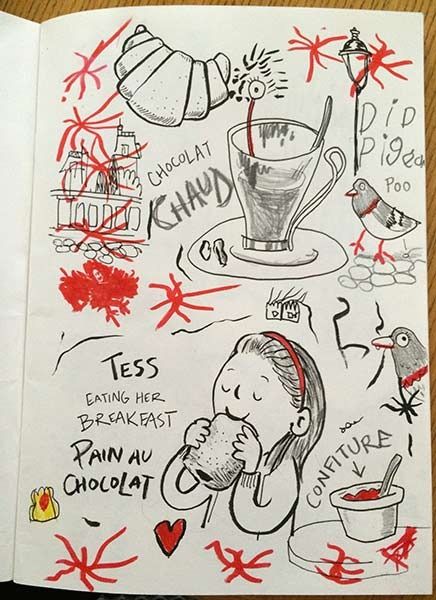 CHOCOLAT
CHAUD
DiD
Pigeon
POO
TESS
EATING HER
BREAKFAST
PAIN AU
CHOCOLAT
CONFITURE